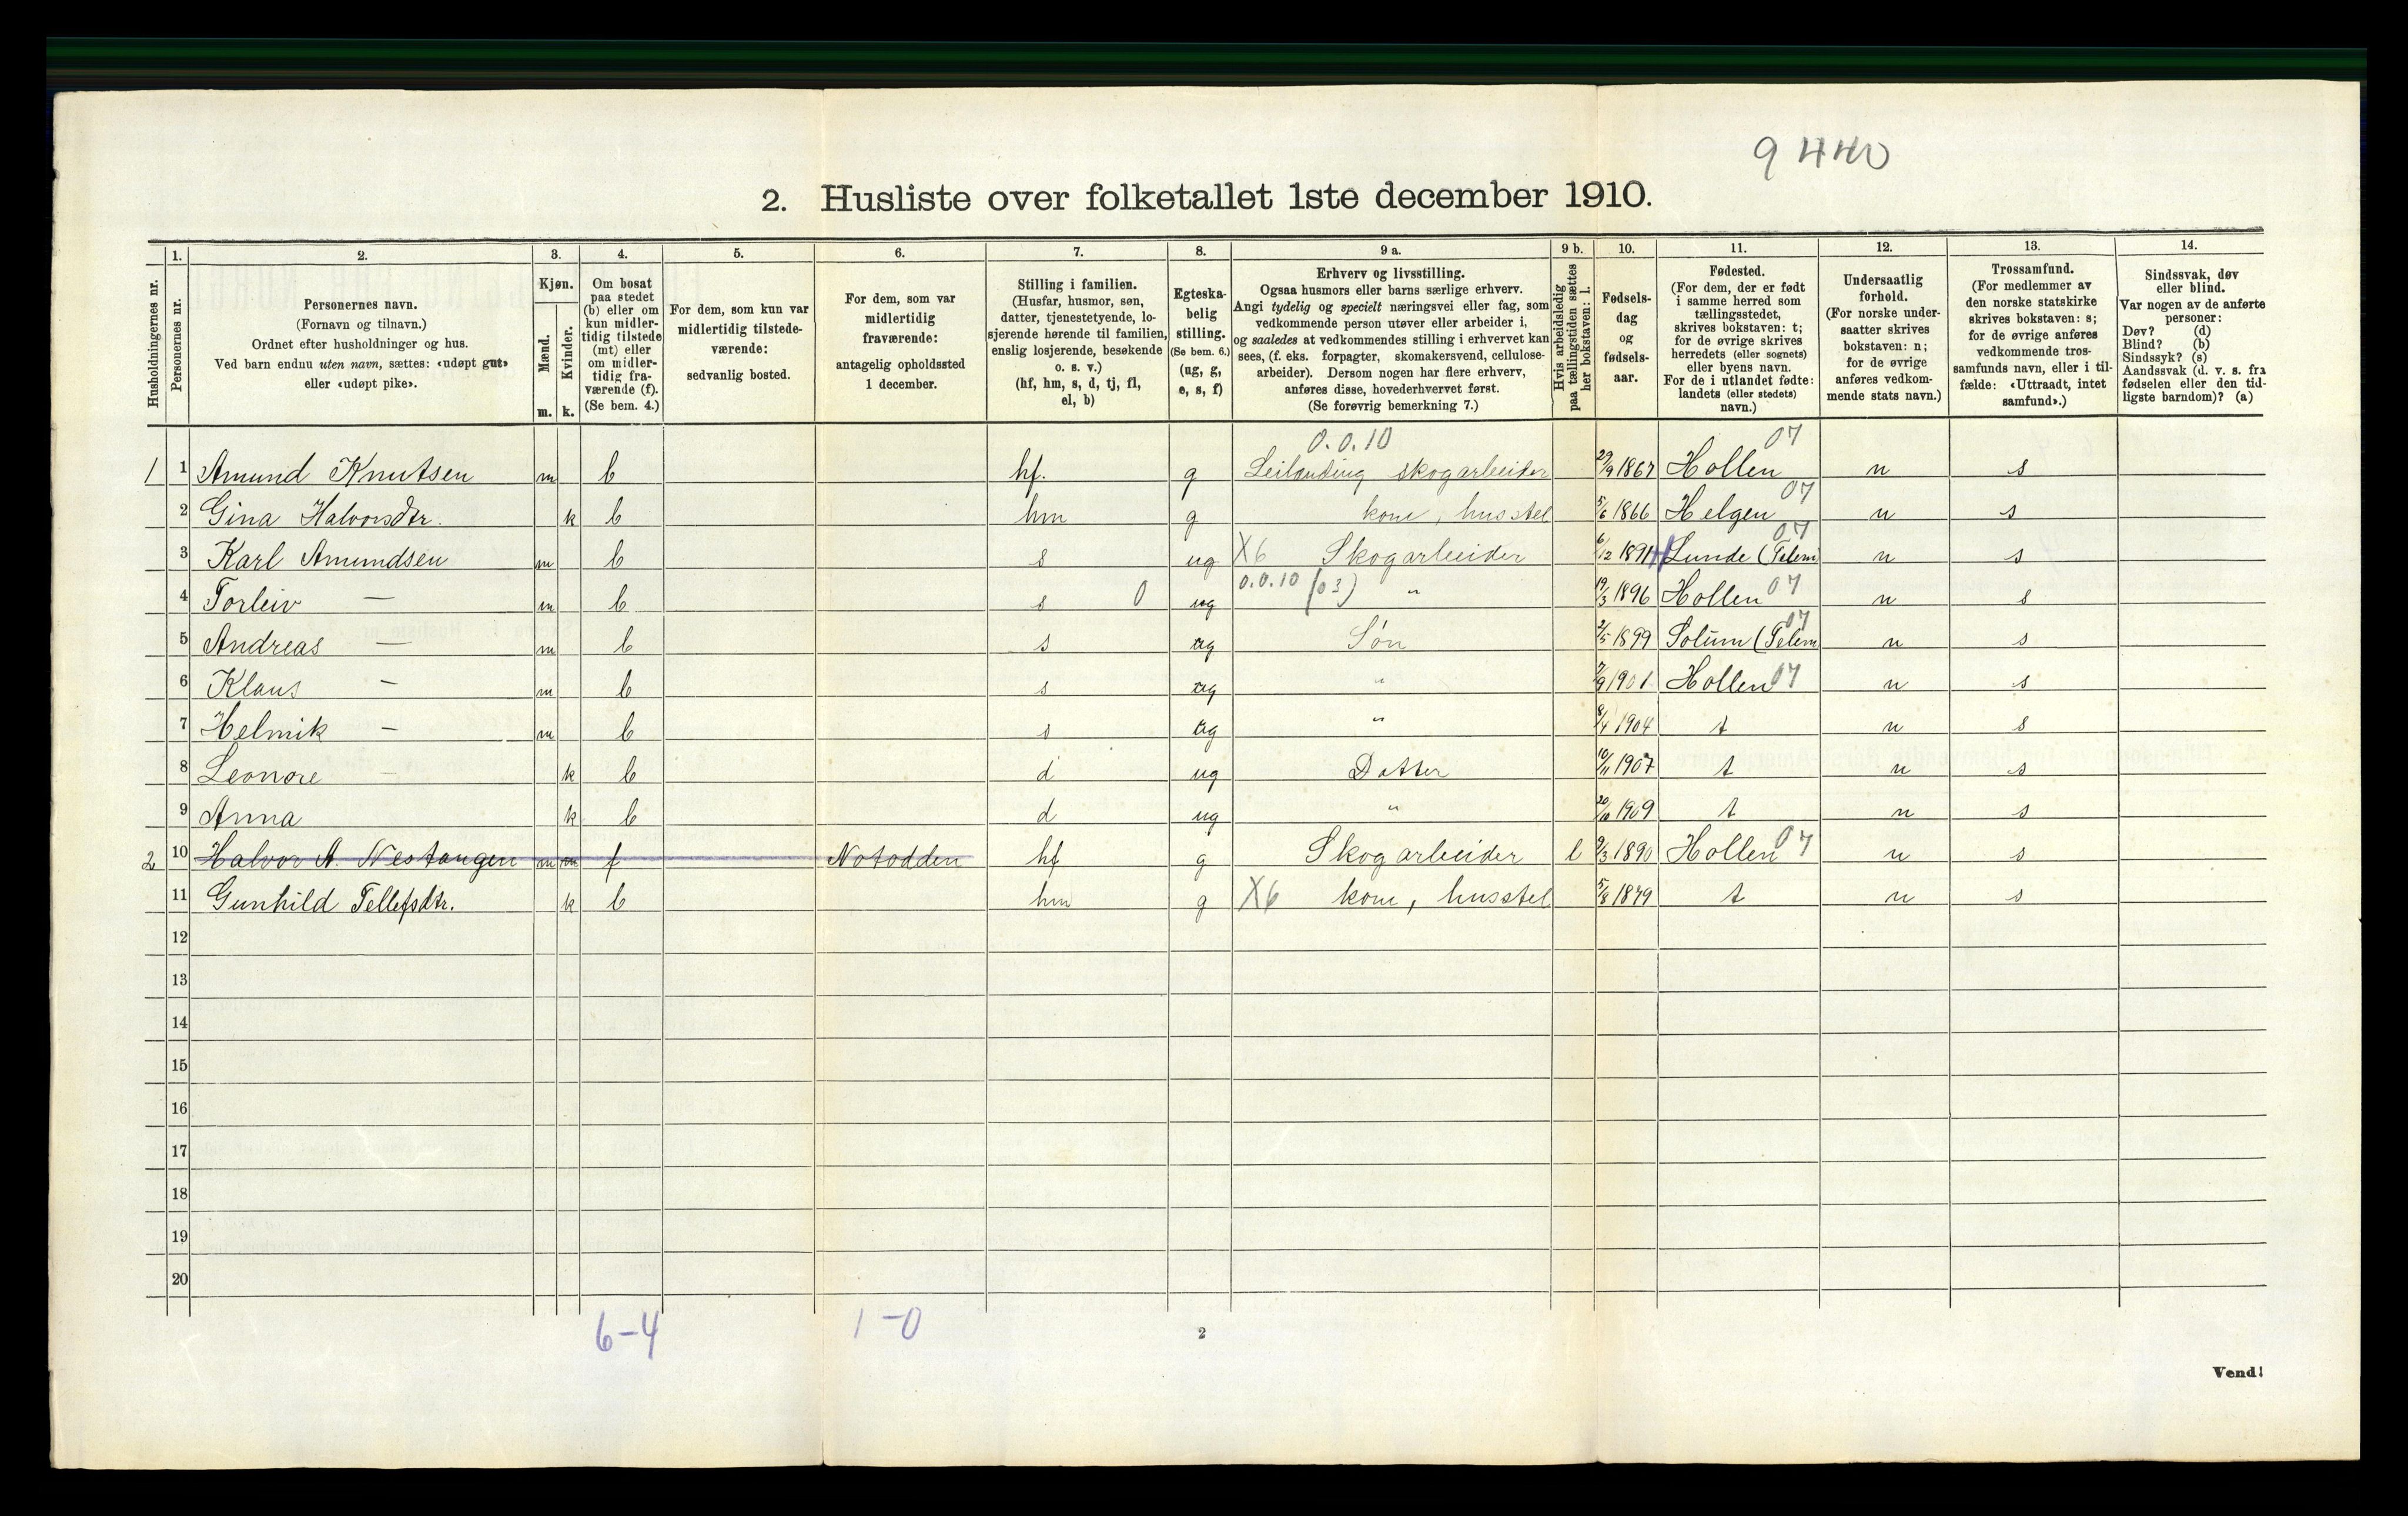 9440
2. Husliste over folketallet 1ste december 1910.
Husholdningernes nr.
1. Personernes nr.
2. Personernes navn.
(Fornavn og tilnavn.)
Ordnet efter husholdninger og hus.
Ved barn endnu uten navn, sættes: «udøpt gut»
eller «udøpt pike».
3. Kjøn.
Mænd. m.
Kvinder. k.
4. Om bosat
paa stedet
(b) eller om
kun midler-
tidig tilstede
(mt) eller
om midler-
tidig fra-
værende (f).
(Se bem. 4.)
5. For dem, som kun var
midlertidig tilstede-
værende:
sedvanlig bosted.
6. For dem, som var
midlertidig
fraværende:
antagelig opholdssted
1 december.
7. Stilling i familien.
(Husfar, husmor, søn,
datter, tjenestetyende, lo-
sjerende hørende til familien,
enslig losjerende, besøkende
o. s. v.)
(hf, hm, s, d, tj, fl,
el, b)
8. Egteska-
belig
stilling.
(Se bem. 6.)
(ug, g,
e, s, f)
9 a. Erhverv og livsstilling.
Ogsaa husmors eller barns særlige erhverv.
Angi tydelig og specielt næringsvei eller fag, som
vedkommende person utøver eller arbeider i,
og saaledes at vedkommendes stilling i erhvervet kan
sees, (f. eks. forpagter, skomakersvend, cellulose-
arbeider). Dersom nogen har flere erhverv,
anføres disse, hovederhvervet først.
(Se forøvrig bemerkning 7.)
9 b. Hvis arbeidsledig
paa tællingstiden sættes
her bokstaven: l.
10. Fødsels-
dag
og
fødsels-
aar.
11. Fødested.
(For dem, der er født
i samme herred som
tællingsstedet,
skrives bokstaven: t;
for de øvrige skrives
herredets (eller sognets)
eller byens navn.
For de i utlandet fødte:
landets (eller stedets)
navn.)
12. Undersaatlig
forhold.
(For norske under-
saatter skrives
bokstaven: n;
for de øvrige
anføres vedkom-
mende stats navn.)
13. Trossamfund.
(For medlemmer av
den norske statskirke
skrives bokstaven: s;
for de øvrige anføres
vedkommende tros-
samfunds navn, eller i til-
fælde: «Uttraadt, intet
samfund».)
14. Sindssvak, døv
eller blind.
Var nogen av de anførte
personer:
Døv? (d)
Blind? (b)
Sindssyk? (s)
Aandssvak (d. v. s. fra
fødselen eller den tid-
ligste barndom)? (a)
0.0.10 07
1 1 Amund Knutsen m b hf. g Leilending skogarbeider 29/9 1867 Hollen n s
2 Gina Halvorsdtr. k b hm g kone, husstel 5/6 1866 Helgen 07 n s
3 Karl Amundsen m b s ug X6 Skogarbeider 6/12 1891 Lunde (Telem 07 n s
4 Torleiv — m b s 0 ug 0.0.10 (03) " 19/3 1896 Hollen 07 n s
5 Andreas — m b s ug Søn 2/5 1899 Solum (Telem 07 n s
6 Klaus — m b s ug " 7/9 1901 Hollen 07 n s
7 Helmik — m b s ug " 8/4 1904 t n s
8 Leonore — k b d ug Datter 10/11 1907 t n s
9 Anna k b d ug " 20/10 1909 t n s
2 10 Halvor A. Nestangen m f Notodden hf g Skogarbeider l 9/3 1890 Hollen 07 n s
11 Gunhild Tellefsdtr. k b hm g X6 kone, husstel 5/8 1879 t n s
12
13
14
15
16
17
18
19
20
6-4 1-0
2
Vend!